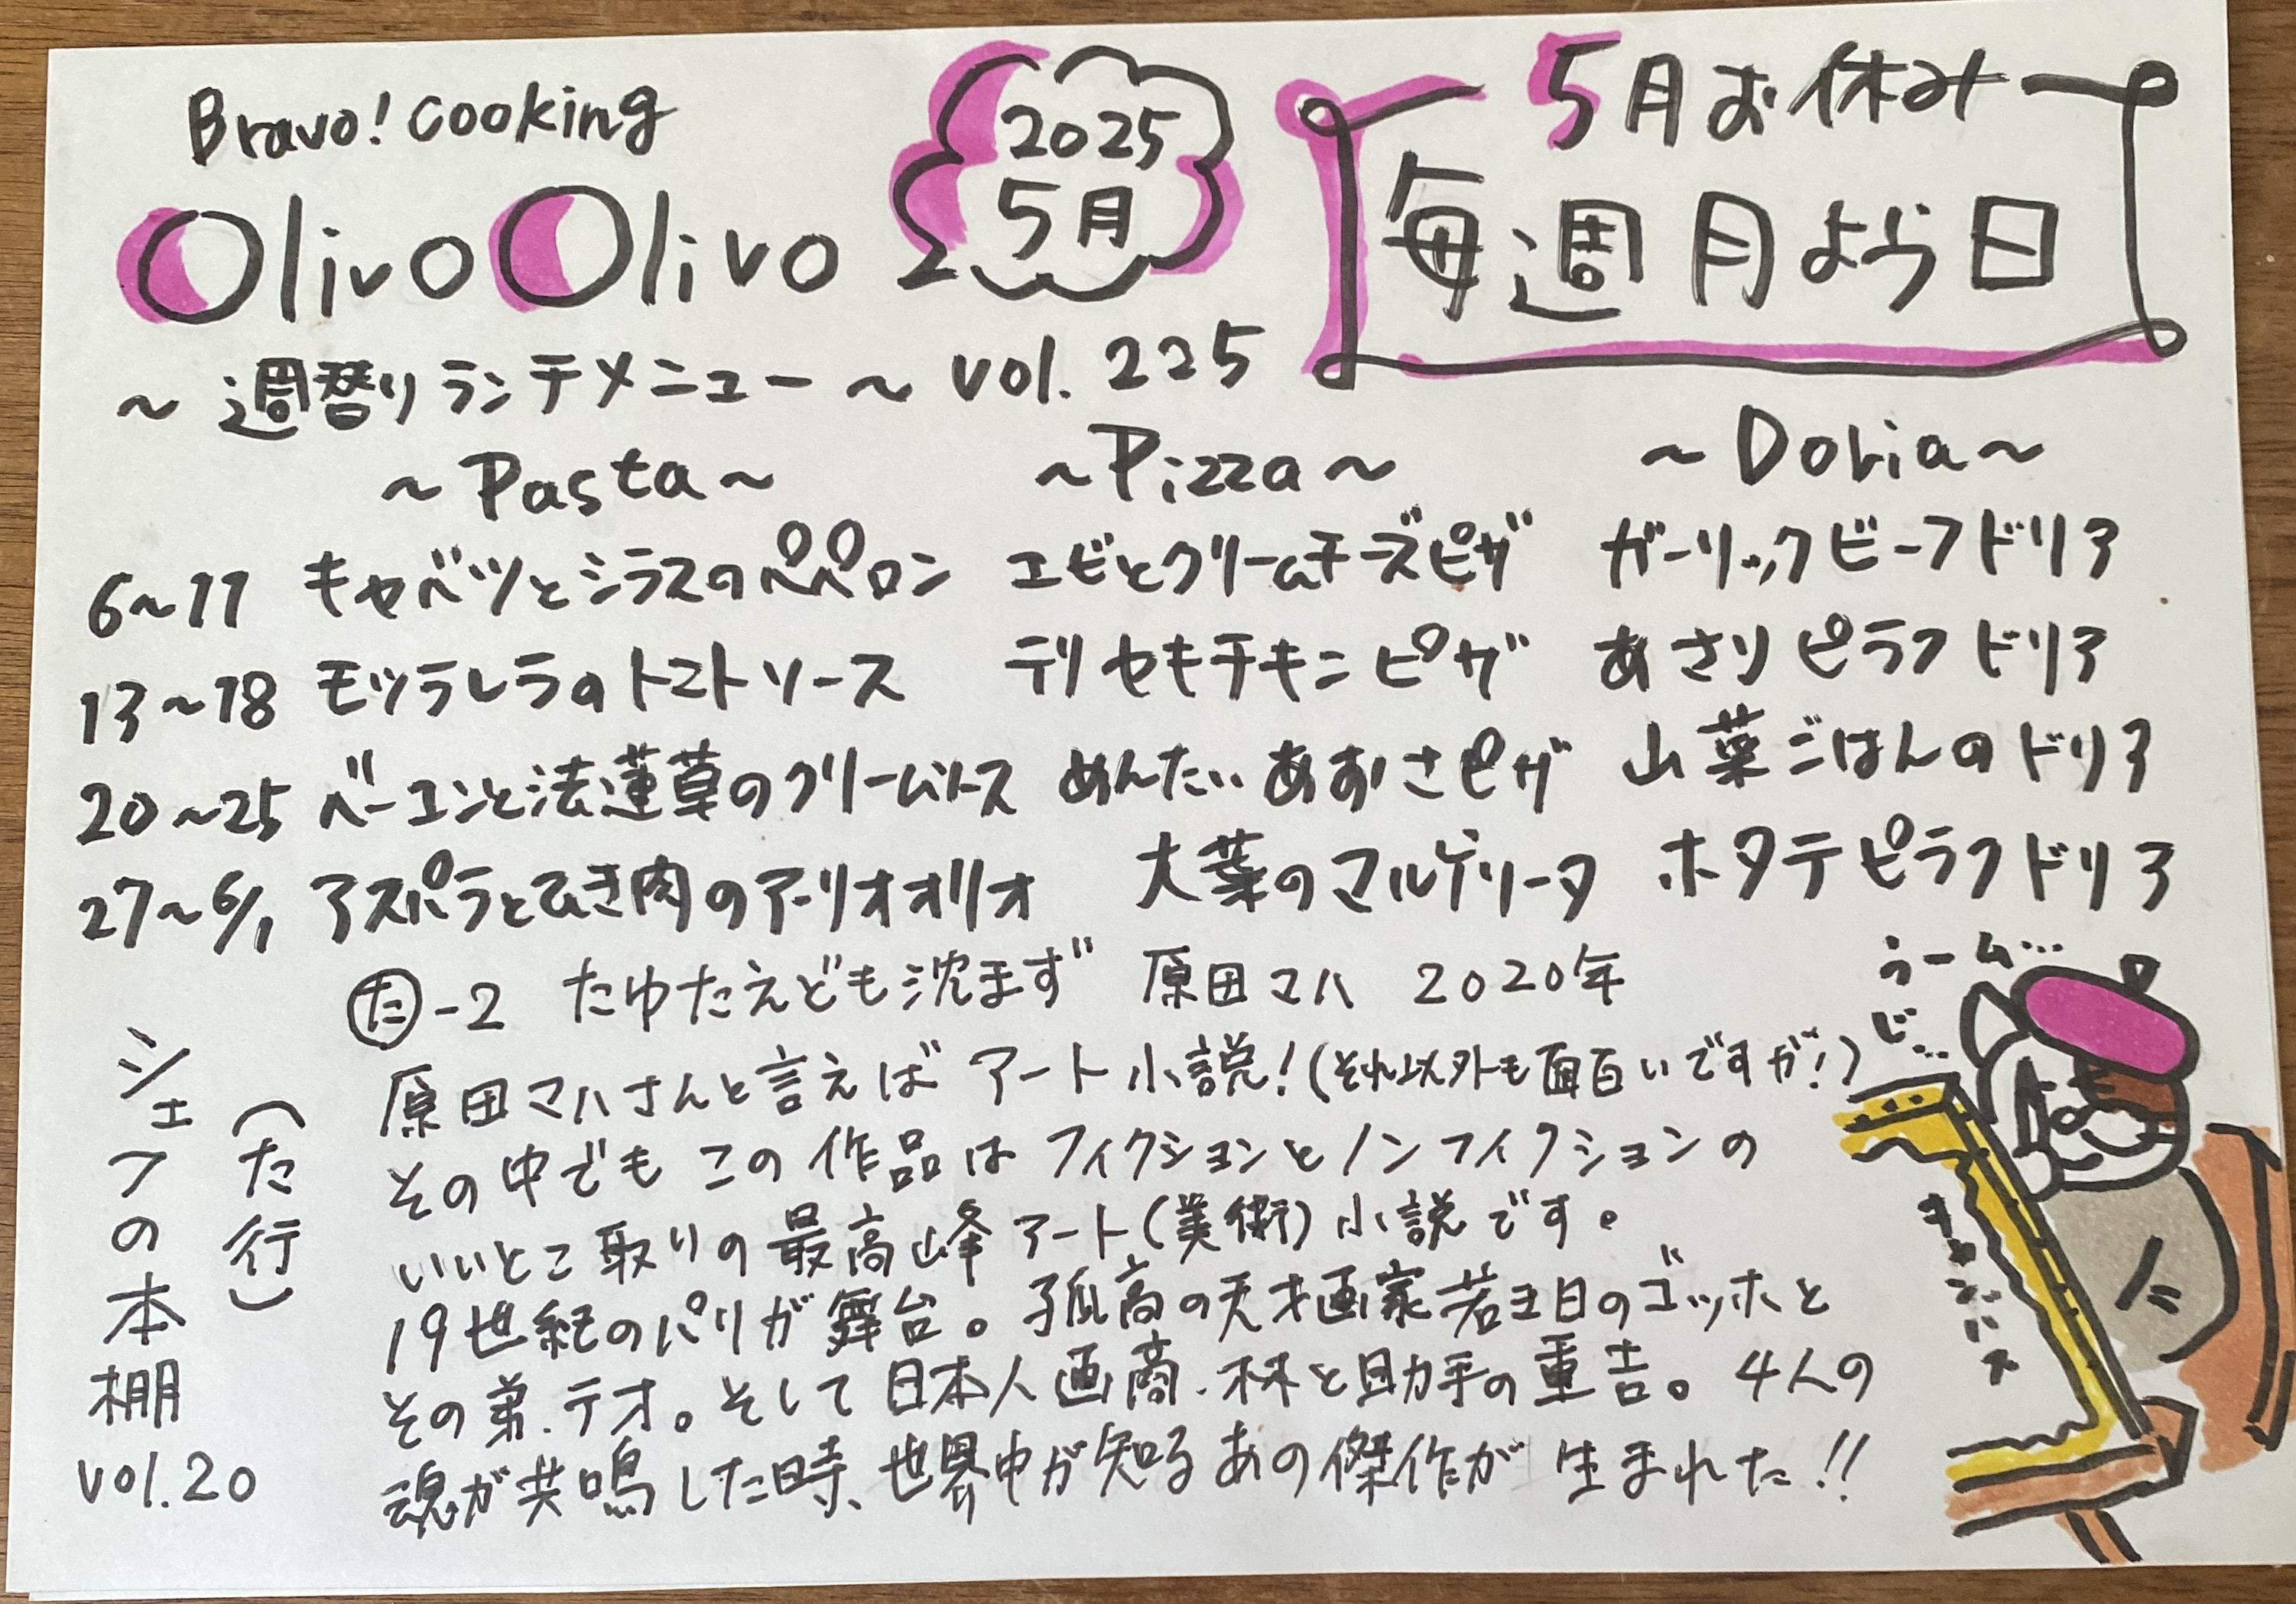 Bravo! cooking
Olivo Olivo
2025
5月
5月お休み
毎週月よう日
～週替りランチメニュー～ vol. 225
～Pasta～ ～Pizza～ ～Doria～
6～11 キャベツとシラスのペペロン エビとクリームチーズピザ ガーリックビーフドリア
13～18 モッツァレラのトマトソース テリヤキチキンピザ あさりピラフドリア
20～25 ベーコンと法蓮草のクリームソース めんたいあおさピザ 山菜ごはんのドリア
27～6/1 アスパラとひき肉のアーリオオリオ 大葉のマルゲリータ ホタテピラフドリア
シェフの本棚
vol.20
(た行)
た-2 たゆたえども沈まず 原田マハ 2020年
原田マハさんと言えばアート小説!(それ以外も面白いですが!)
その中でもこの作品はフィクションとノンフィクションの
いいとこ取りの最高峰アート(美術)小説です。
19世紀のパリが舞台。孤高の天才画家若き日のゴッホと
その弟.テオ。そして日本人画商.林と助手の重吉。4人の
魂が共鳴した時、世界中が知るあの傑作が生まれた!!
うーム…
じ…
キャンバス